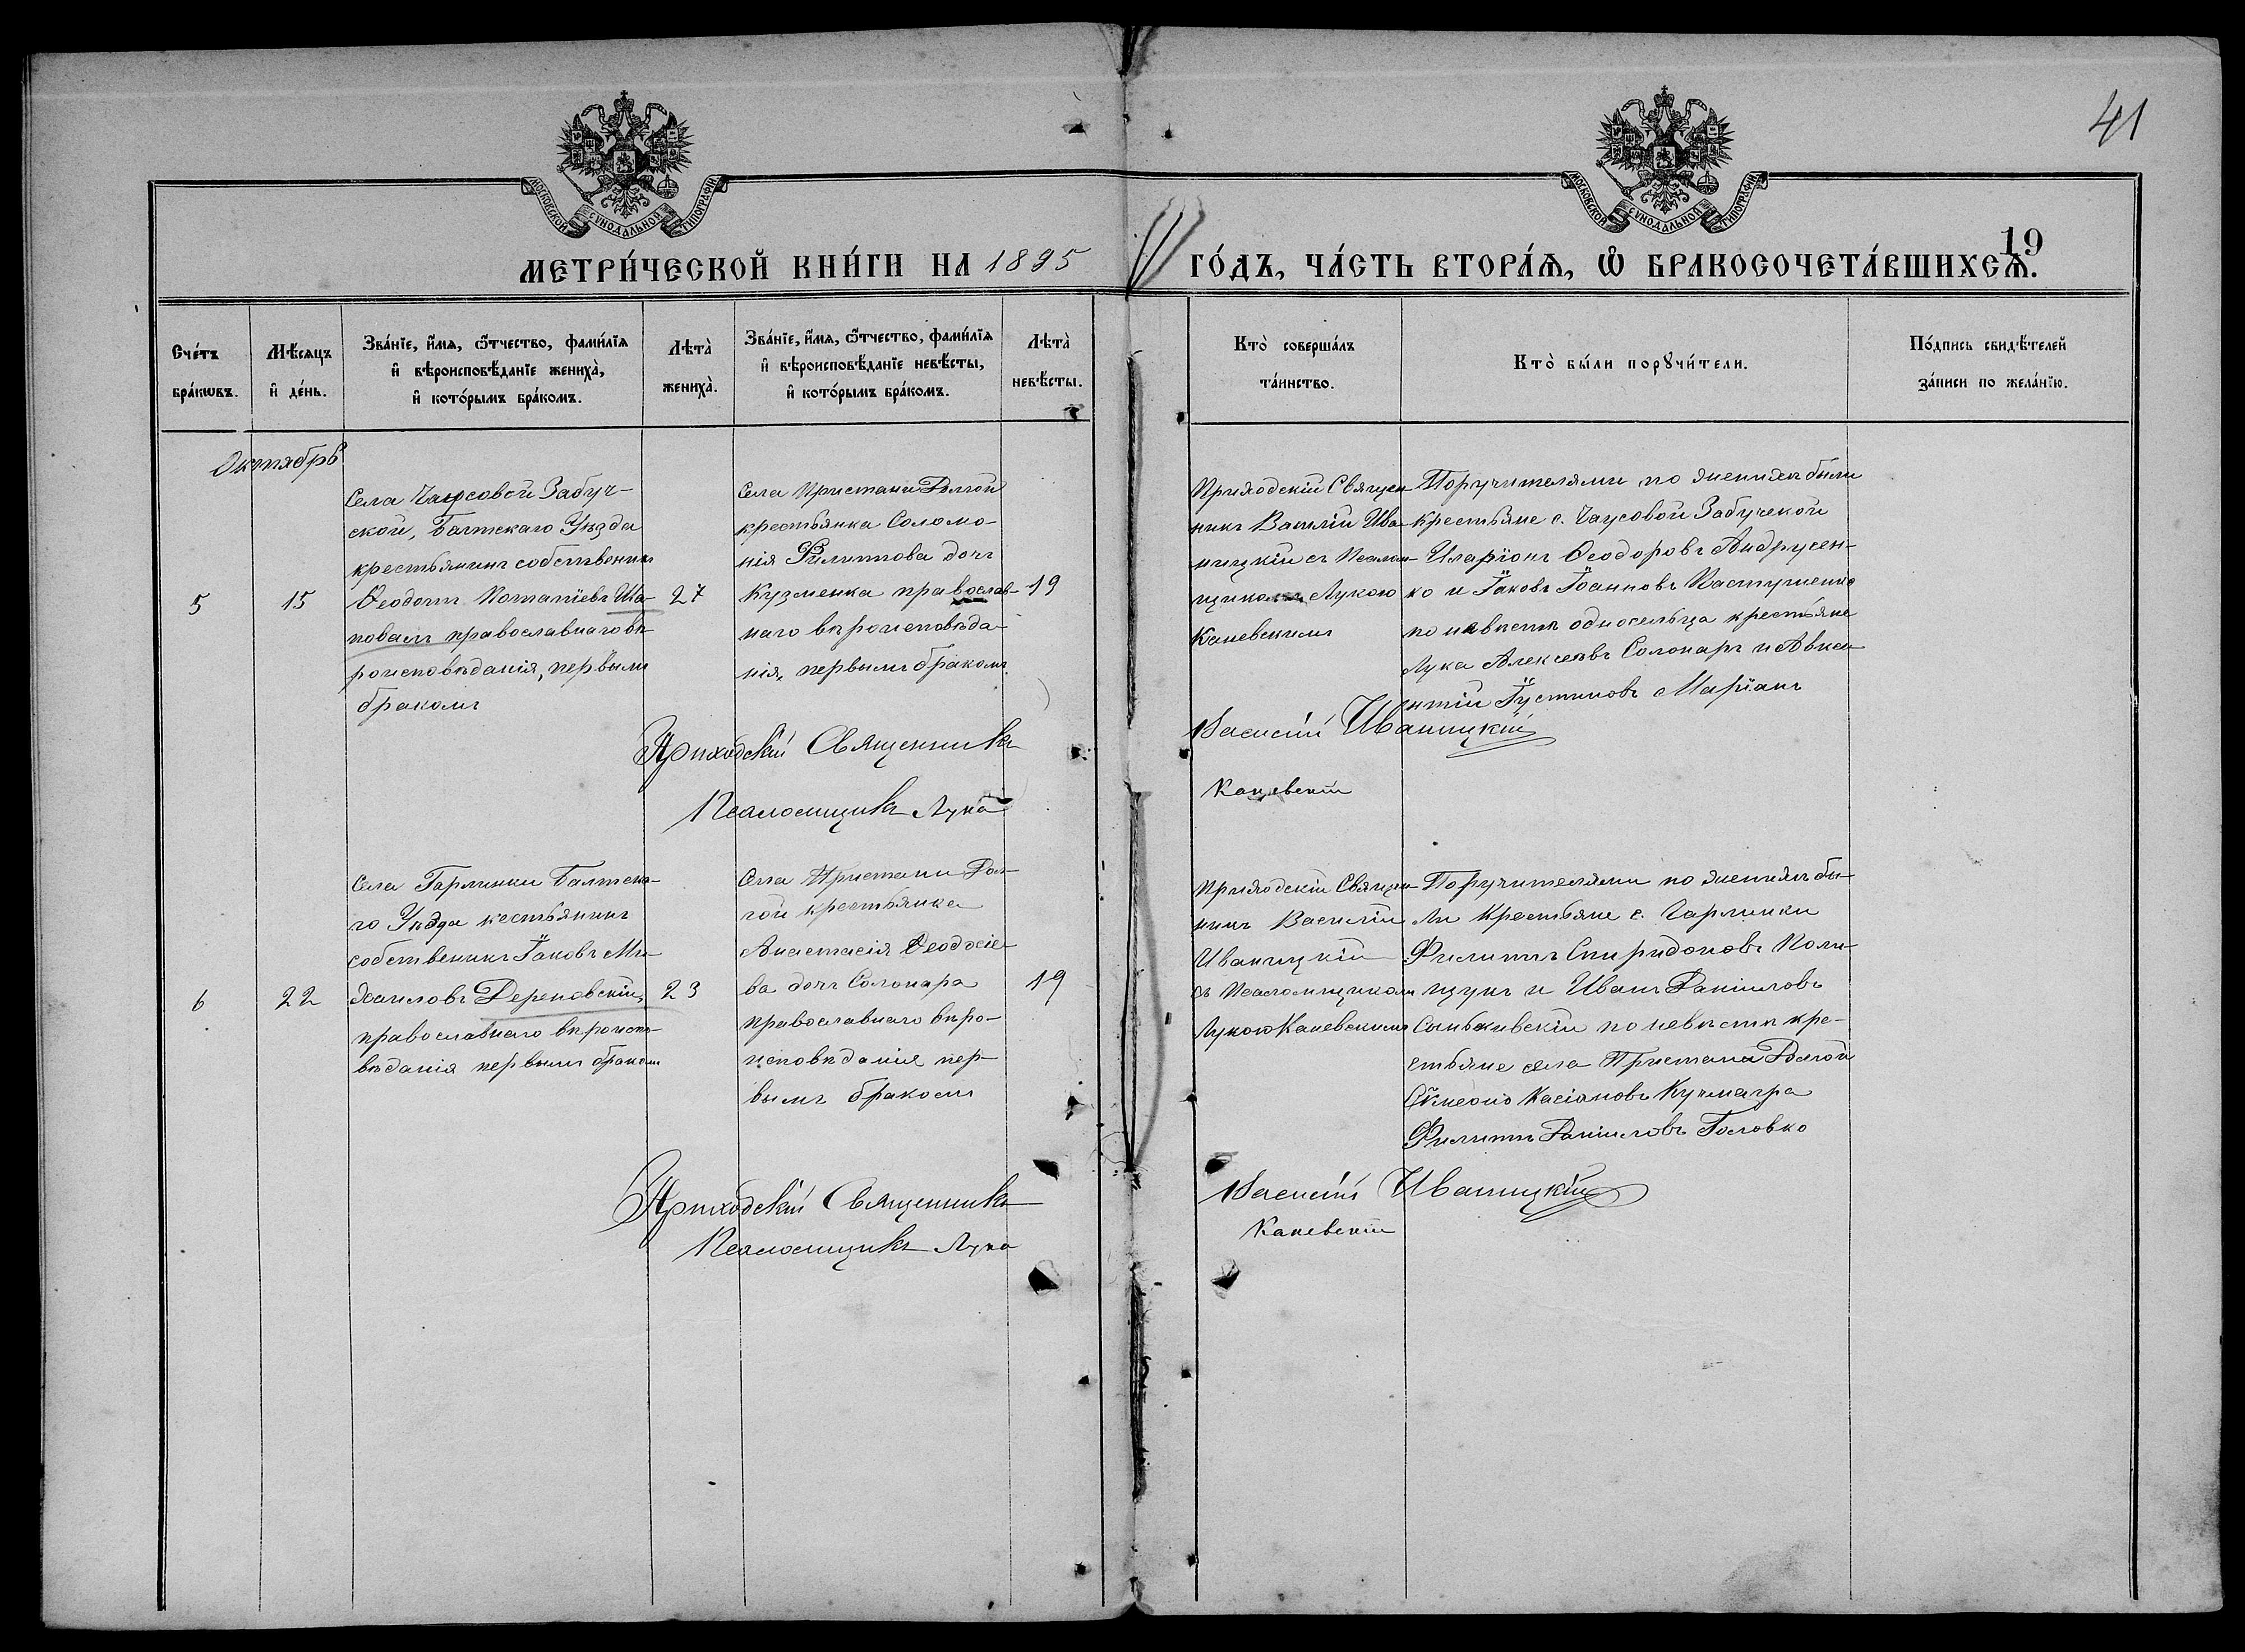 41
МОСКОВСКОЙ СѴНОДАЛЬНОЙ ТИПОГРАФІИ
МОСКОВСКОЙ СѴНОДАЛЬНОЙ ТИПОГРАФІИ
19
МЕТРИ́ЧЕСКОЙ КНИ́ГИ НА 1895
ГО́ДЪ, ЧА́СТЬ ВТОРА́Ѧ, Ѡ҆ БРАКОСОЧЕТА́ВШИХСѦ.
Сче́тъ
бра́кѡвъ.
Мѣ́сяцъ
и҆ де́нь.
Зва́нїе, и҆́мя, ѻ҆́тчество, фами́лїя
и҆ вѣроисповѣ́данїе жениха̀,
и҆ кото́рымъ бра́комъ.
Лѣта̀
жениха̀.
Зва́нїе, и҆́мя, ѻ҆́тчество, фами́лїя
и҆ вѣроисповѣ́данїе невѣ́сты,
и҆ кото́рымъ бра́комъ.
Лѣта̀
невѣ́сты.
Кто̀ соверша́лъ
та́инство.
Кто̀ бы́ли порꙋчи́тели.
По́дпись свидѣ́телей
за́писи по жела́нїю.
Октябрь
5
15
Села Чаусовой Забуч-
ской, Балтскаго Уѣзда
крестьянинъ собственникъ
Ѳеодотъ Потапіевъ Ша-
повалъ православнаго вѣ-
роисповѣданія, первымъ
бракомъ
27
Села Пристани Долгой
крестьянка Соломо-
нія Филиппова дочь
Кузменка православ-
наго вѣроисповѣда-
нія, первымъ бракомъ
19
Приходскій Священ-
никъ Василій Ива-
ницкій съ Псалом-
щикомъ Лукою
Каневскимъ
Поручителями по женихѣ были
крестьяне с. Чаусовой Забучской
Иларіонъ Ѳеодоровъ Андрусен-
ко и Іаковъ Іоанновъ
по невѣстѣ односельца крестьяне
Лука Алексѣевъ Солонарь и Авксен-
тій Іустиновъ Маріанъ
Приходскій Священникъ
Василій Иваницкій
Псаломщикъ Лука
Каневскій
6
22
Села Гарлинки Балтска-
го Уѣзда кестьянинъ
собственникъ Іаковъ Ми-
хаиловъ Дереновскій,
православнаго вѣроиспо-
вѣданія первымъ бракомъ
23
Села Пристани Дол-
гой крестьянка
Анастасія Ѳеодосіе-
ва дочь Солонара
православнаго вѣро-
исповѣданія пер-
вымъ бракомъ
19
Приходскій Священ-
никъ Василій
Иваницкій
съ Псаломщикомъ
Лукою Каневскимъ
Поручителями по женихѣ бы-
ли Крестьяне с. Гарлинки
Филиппъ Спиридоновъ Поли-
щукъ и Иванъ Даніиловъ
по невѣстѣ кре-
стьяне села Пристани Долгой
Касіановъ
Филиппъ Даніиловъ Головко
Приходскій Священникъ
Василій Иваницкій
Псаломщикъ Лука
Каневскій